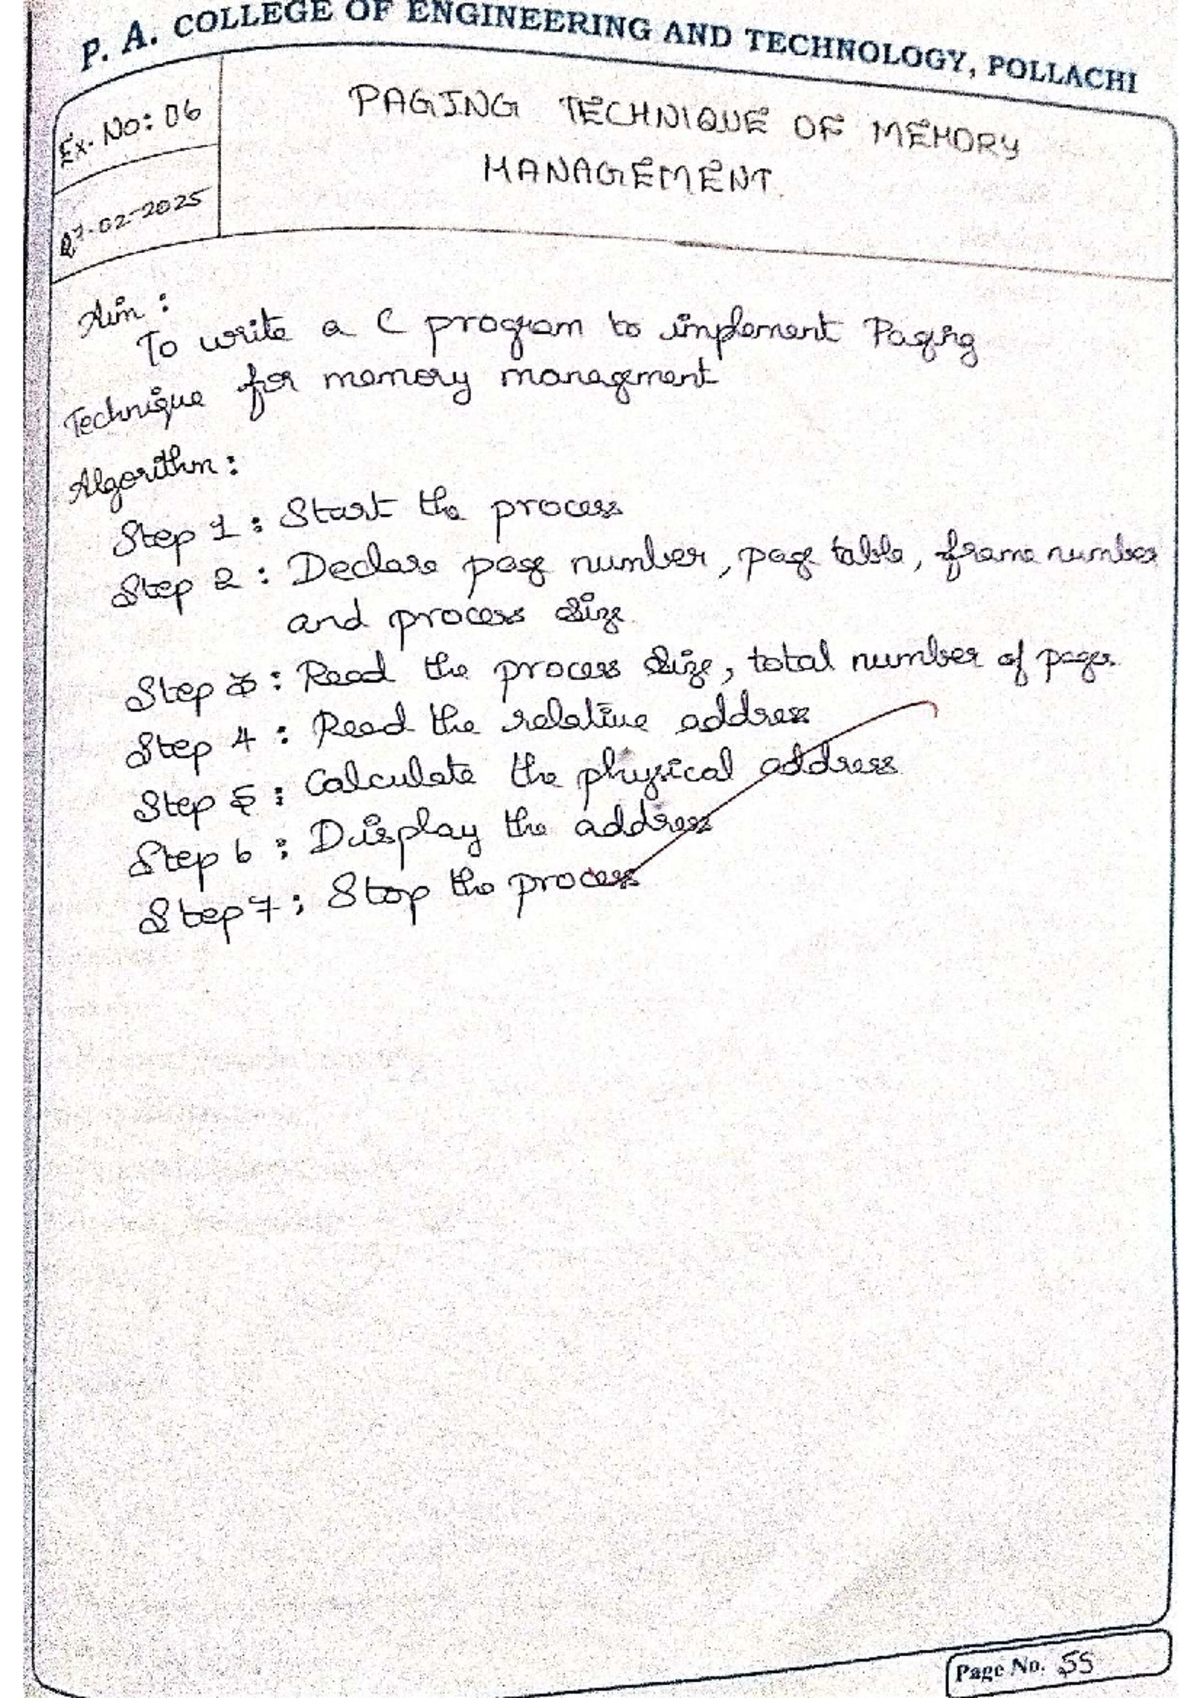 P. A. COLLEGE OF ENGINEERING AND TECHNOLOGY, POLLACHI
Ex. No: 06
27-02-2025
PAGING TECHNIQUE OF MEMORY
MANAGEMENT.
Aim :
To write a C program to implement Paging
Technique for memory management
Algorithm :
Step 1 : Start the process
Step 2 : Declare page number, page table, frame number
and process size.
Step 3 : Read the process size, total number of pages.
Step 4 : Read the relative address
Step 5 : Calculate the physical address
Step 6 : Display the address
Step 7 : Stop the process
Page No. 55